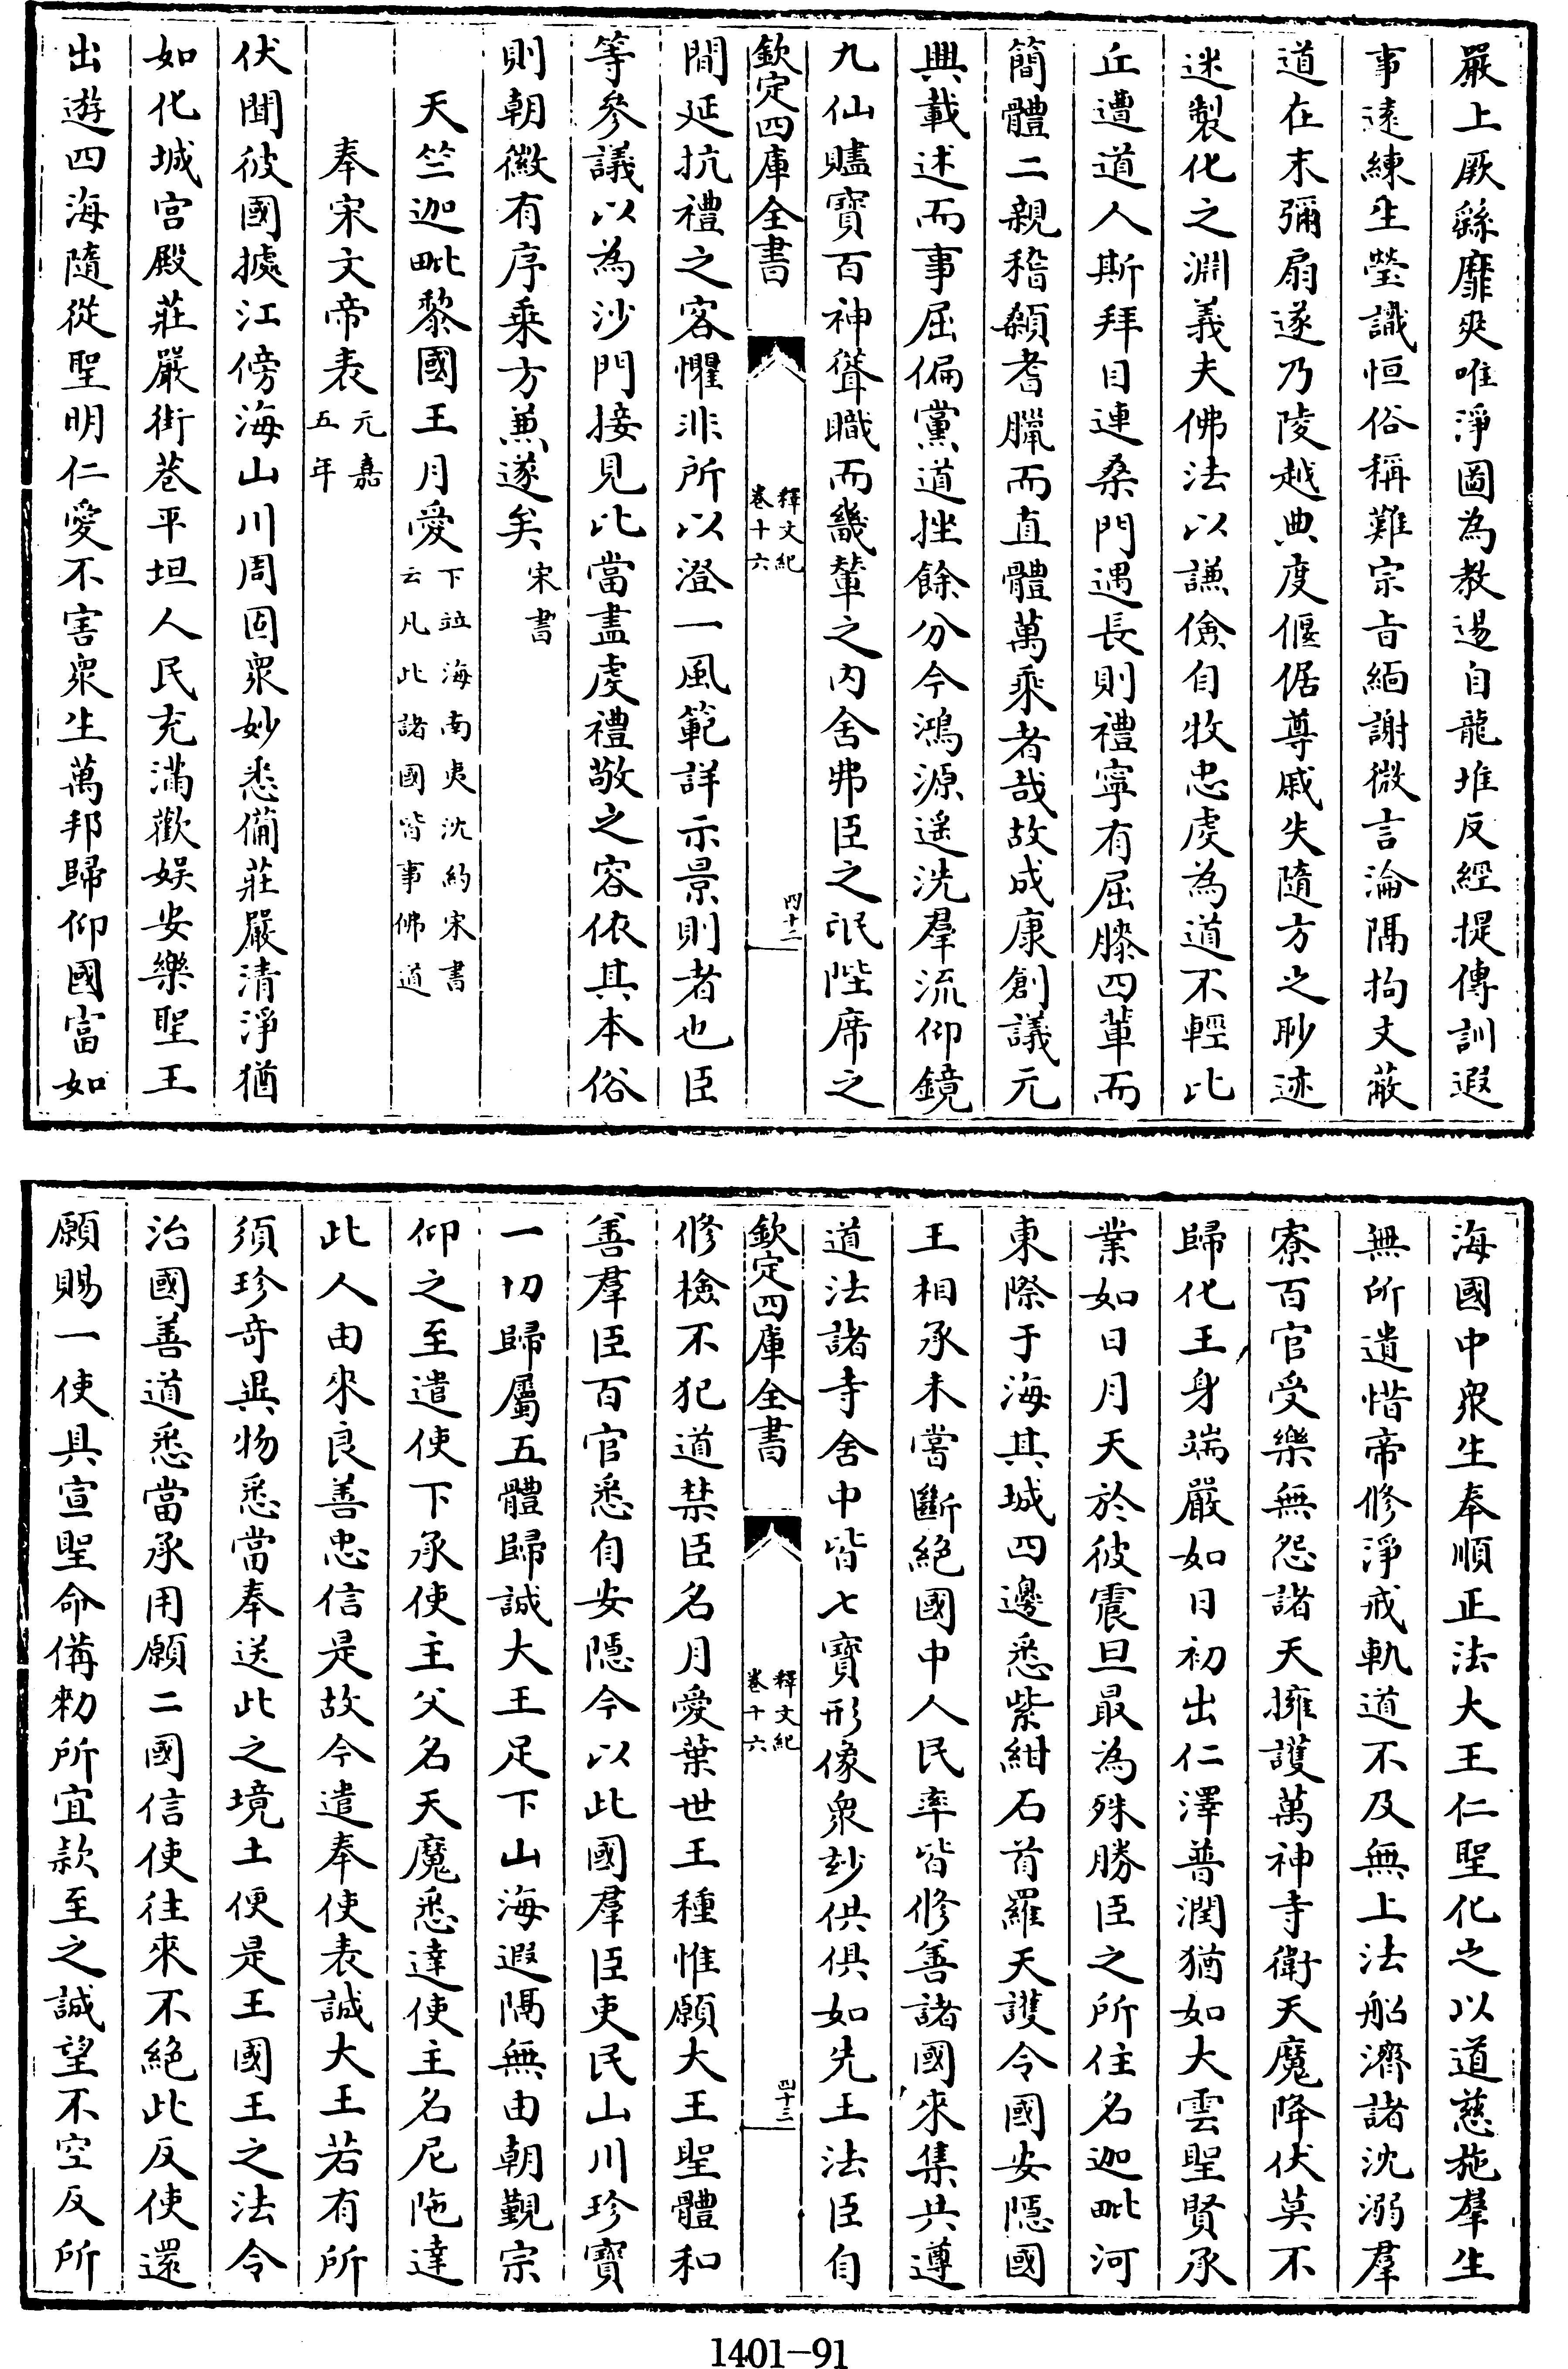 嚴上厥繇靡爽唯淨圖為教逷自龍堆反經提傳訓遐
事遠練生瑩識恒俗稱難宗旨緬謝微言淪隔拘文蔽
道在末彌扇遂乃陵越典度偃倨尊戚失隨方之眇迹
迷製化之淵義夫佛法以謙儉自牧忠虔為道不輕比
丘遭道人斯拜目連桑門遇長則禮寧有屈膝四輩而
簡體二親稽顙耆臘而直體萬乘者哉故成康創議元
興載述而事屈偏黨道挫餘分今鴻源遥洗羣流仰鏡
九仙贐寳百神聳職而畿輦之内舍弗臣之氓陛席之
欽定四庫全書
釋文紀
卷十六
四十二
間延抗禮之客懼非所以澄一風範詳示景則者也臣
等參議以為沙門接見比當盡虔禮敬之容依其本俗
則朝徽有序乗方兼遂矣宋書
天竺迦毗黎國王月愛下竝海南夷沈約宋書
云凡此諸國皆事佛道
奉宋文帝表元嘉
五年
伏聞彼國據江傍海山川周固衆妙悉備莊嚴清淨猶
如化城宫殿莊嚴街巷平坦人民充滿歡娱安樂聖王
出遊四海隨從聖明仁愛不害衆生萬邦歸仰國富如
海國中衆生奉順正法大王仁聖化之以道慈施羣生
無所遺惜帝修淨戒軌道不及無上法船濟諸沈溺羣
寮百官受樂無怨諸天擁護萬神寺衛天魔降伏莫不
歸化王身端嚴如日初出仁澤普潤猶如大雲聖賢承
業如日月天於彼震旦最為殊勝臣之所住名迦毗河
東際于海其城四邊悉紫紺石首羅天護令國安隱國
王相承未嘗斷絶國中人民率皆修善諸國來集共遵
道法諸寺舍中皆七寳形像衆玅供俱如先王法臣自
欽定四庫全書
釋文紀
卷十六
四十三
修檢不犯道禁臣名月愛葉世王種惟願大王聖體和
善羣臣百官悉自安隱今以此國羣臣吏民山川珍寳
一切歸屬五體歸誠大王足下山海遐隔無由朝覲宗
仰之至遣使下承使主父名天魔悉達使主名尼陁達
此人由來良善忠信是故今遣奉使表誠大王若有所
須珍奇異物悉當奉送此之境土便是王國王之法令
治國善道悉當承用願二國信使往來不絶此反使還
願賜一使具宣聖命備勑所宜款至之誠望不空反所
1401-91